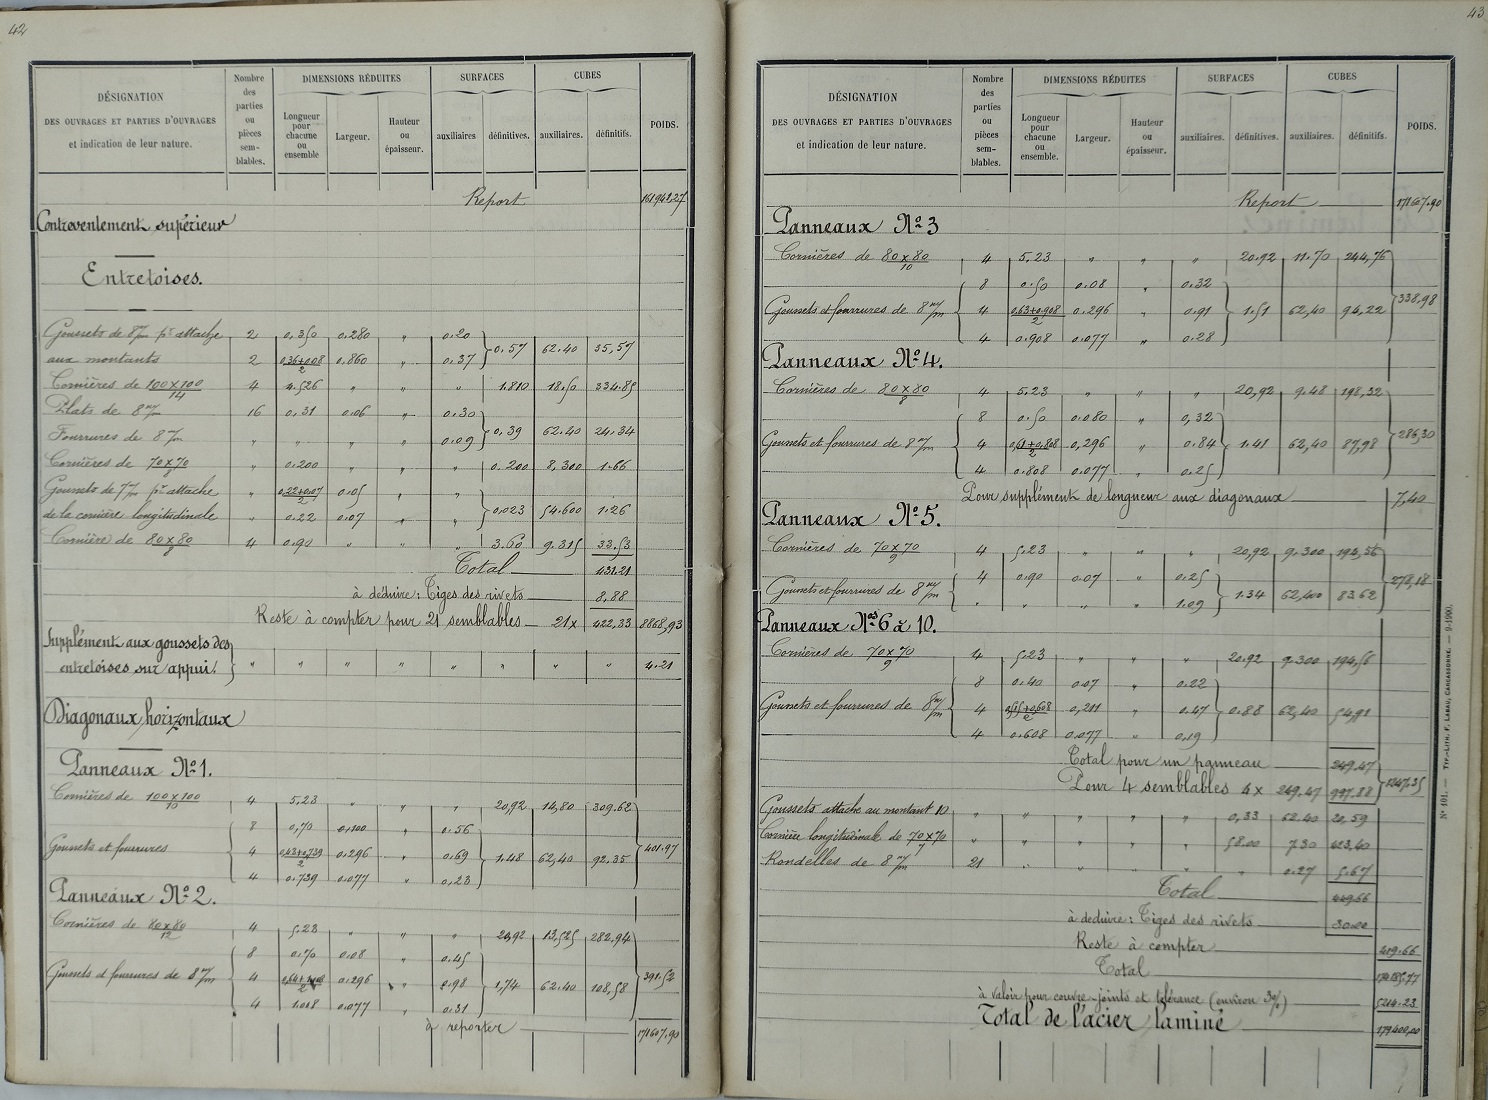 42
DÉSIGNATION
DES OUVRAGES ET PARTIES D'OUVRAGES
et indication de leur nature.
Nombre des parties ou pièces sem- blables.
DIMENSIONS RÉDUITES
Longueur pour chacune ou ensemble
Largeur.
Hauteur ou épaisseur.
SURFACES
auxiliaires
définitives.
CUBES
auxiliaires.
définitifs.
POIDS.
Report 161942,27
Contreventement supérieur
Entretoises.
Goussets de 8m/m pr attache 2 0.350 0.280 " 0.20
aux montants 2 0.36+0.08/2 0.860 " 0.37 } 0.57 62.40 35,57
Cornières de 100x100/14 4 4.526 " " " 1.810 18.50 334.85
Plats de 8m/m 16 0.31 0.06 " 0.30
Fourrures de 8m/m " " " " 0.09 } 0.39 62.40 24.34
Cornières de 70x70/8 " 0.200 " " " 0.200 8,300 1.66
Goussets de 7m/m pr attache " 0.22+0.07/2 0.05 " "
de la cornière longitudinale " 0.22 0.07 " " } 0.023 54.600 1.26
Cornière de 80x80/8 4 0.90 " " " 3.60 9.315 33.53
Total 431.21
à déduire: Tiges des rivets 8.88
Reste à compter pour 21 semblables 21x 422,33 8868,93
Supplément aux goussets des
entretoises sur appui. } " " " " " " " " 4.21
Diagonaux horizontaux
Panneaux No 1.
Cornières de 100x100/10 4 5.23 " " " 20,92 14,80 309.62
8 0,70 0.100 " 0.56
Goussets et fourrures 4 0.43+0.739/2 0.296 " 0.69 1.48 62,40 92.35 401.97
4 0.739 0.077 " 0.23
Panneaux No 2.
Cornières de 80x80/12 4 5.23 " " " 20,92 13.525 282.94
8 0.70 0.08 " 0.45
Goussets et fourrures de 8m/m 4 0.296 " 0.98 1,74 62.40 108,58 391.52
4 1.008 0.077 " 0.31
à reporter 171607.90
43
DÉSIGNATION
DES OUVRAGES ET PARTIES D'OUVRAGES
et indication de leur nature.
Nombre des parties ou pièces sem- blables.
DIMENSIONS RÉDUITES
Longueur pour chacune ou ensemble.
Largeur.
Hauteur ou épaisseur.
SURFACES
auxiliaires.
définitives.
CUBES
auxiliaires.
définitifs.
POIDS.
Report 171607.90
Panneaux No 3
Cornières de 80x80/10 4 5.23 " " " 20.92 11.70 244,76
8 0.50 0.08 " 0.32
Goussets et fourrures de 8m/m 4 0.63+0.908/2 0.296 " 0.91 1.51 62,40 94,22 338,98
4 0.908 0.077 " 0.28
Panneaux No 4.
Cornières de 80x80/8 4 5.23 " " " 20,92 9.48 198,32
8 0.50 0.080 " 0,32
Goussets et fourrures de 8m/m 4 0,61+0,808/2 0,296 " 0.84 1.41 62,40 87,98 286,30
4 0.808 0.077 " 0.25
Pour supplément de longueur aux diagonaux 7,40
Panneaux No 5.
Cornières de 70x70/9 4 5.23 " " " 20,92 9.300 194,56
4 0.90 0.07 " 0.25
Goussets et fourrures de 8m/m " " " " 1.09 1.34 62,400 83.62 278,18
Panneaux Nos 6 à 10.
Cornières de 70x70/9 4 5.23 " " " 20.92 9.300 194,56
8 0.40 0.07 " 0.22
Goussets et fourrures de 8m/m 4 0,211 " 0.47 0.88 62,40 54,91
4 0.608 0.077 " 0.19
Total pour un panneau 249.47
Pour 4 semblables 4x 249.47 997.88 1247.35
Goussets attache au montant 10 " " " " " 0,33 62.40 20,59
Cornière longitudinale de 70x70/7 " " " " " 58.00 7.30 423.40
Rondelles de 8m/m 21 " " " " " 0.27 5.67
Total 449.66
à déduire: Tiges des rivets 30.00
Reste à compter 419.66
Total 174185,77
à valoir pour couvre-joints et tolérance (environ 3%) 5214.23
Total de l'acier laminé 179400,00
No 101. — Typ.-Lith. F. Labau, Carcassonne. — 9-1900.